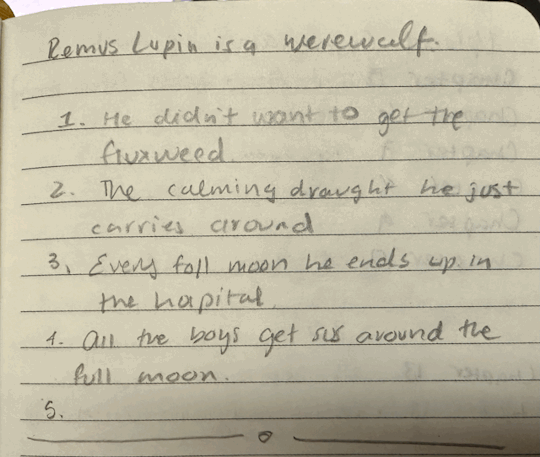 Remus Lupin is a werewulf.
1. He didn't want to get the
fluxweed.
2. The calming draught he just
carries around
3. Every foll moon he ends up in
the hapital.
4. All the boys get sus around the
full moon.
5.